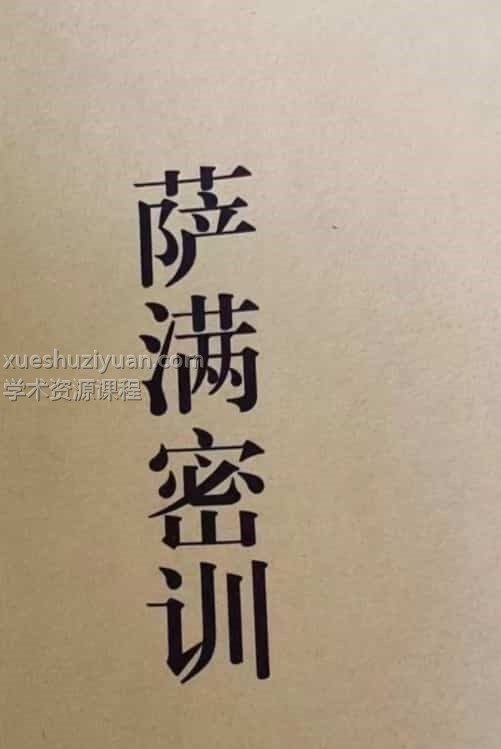 萨满密训
xueshuziyuan.com
学术资源课程